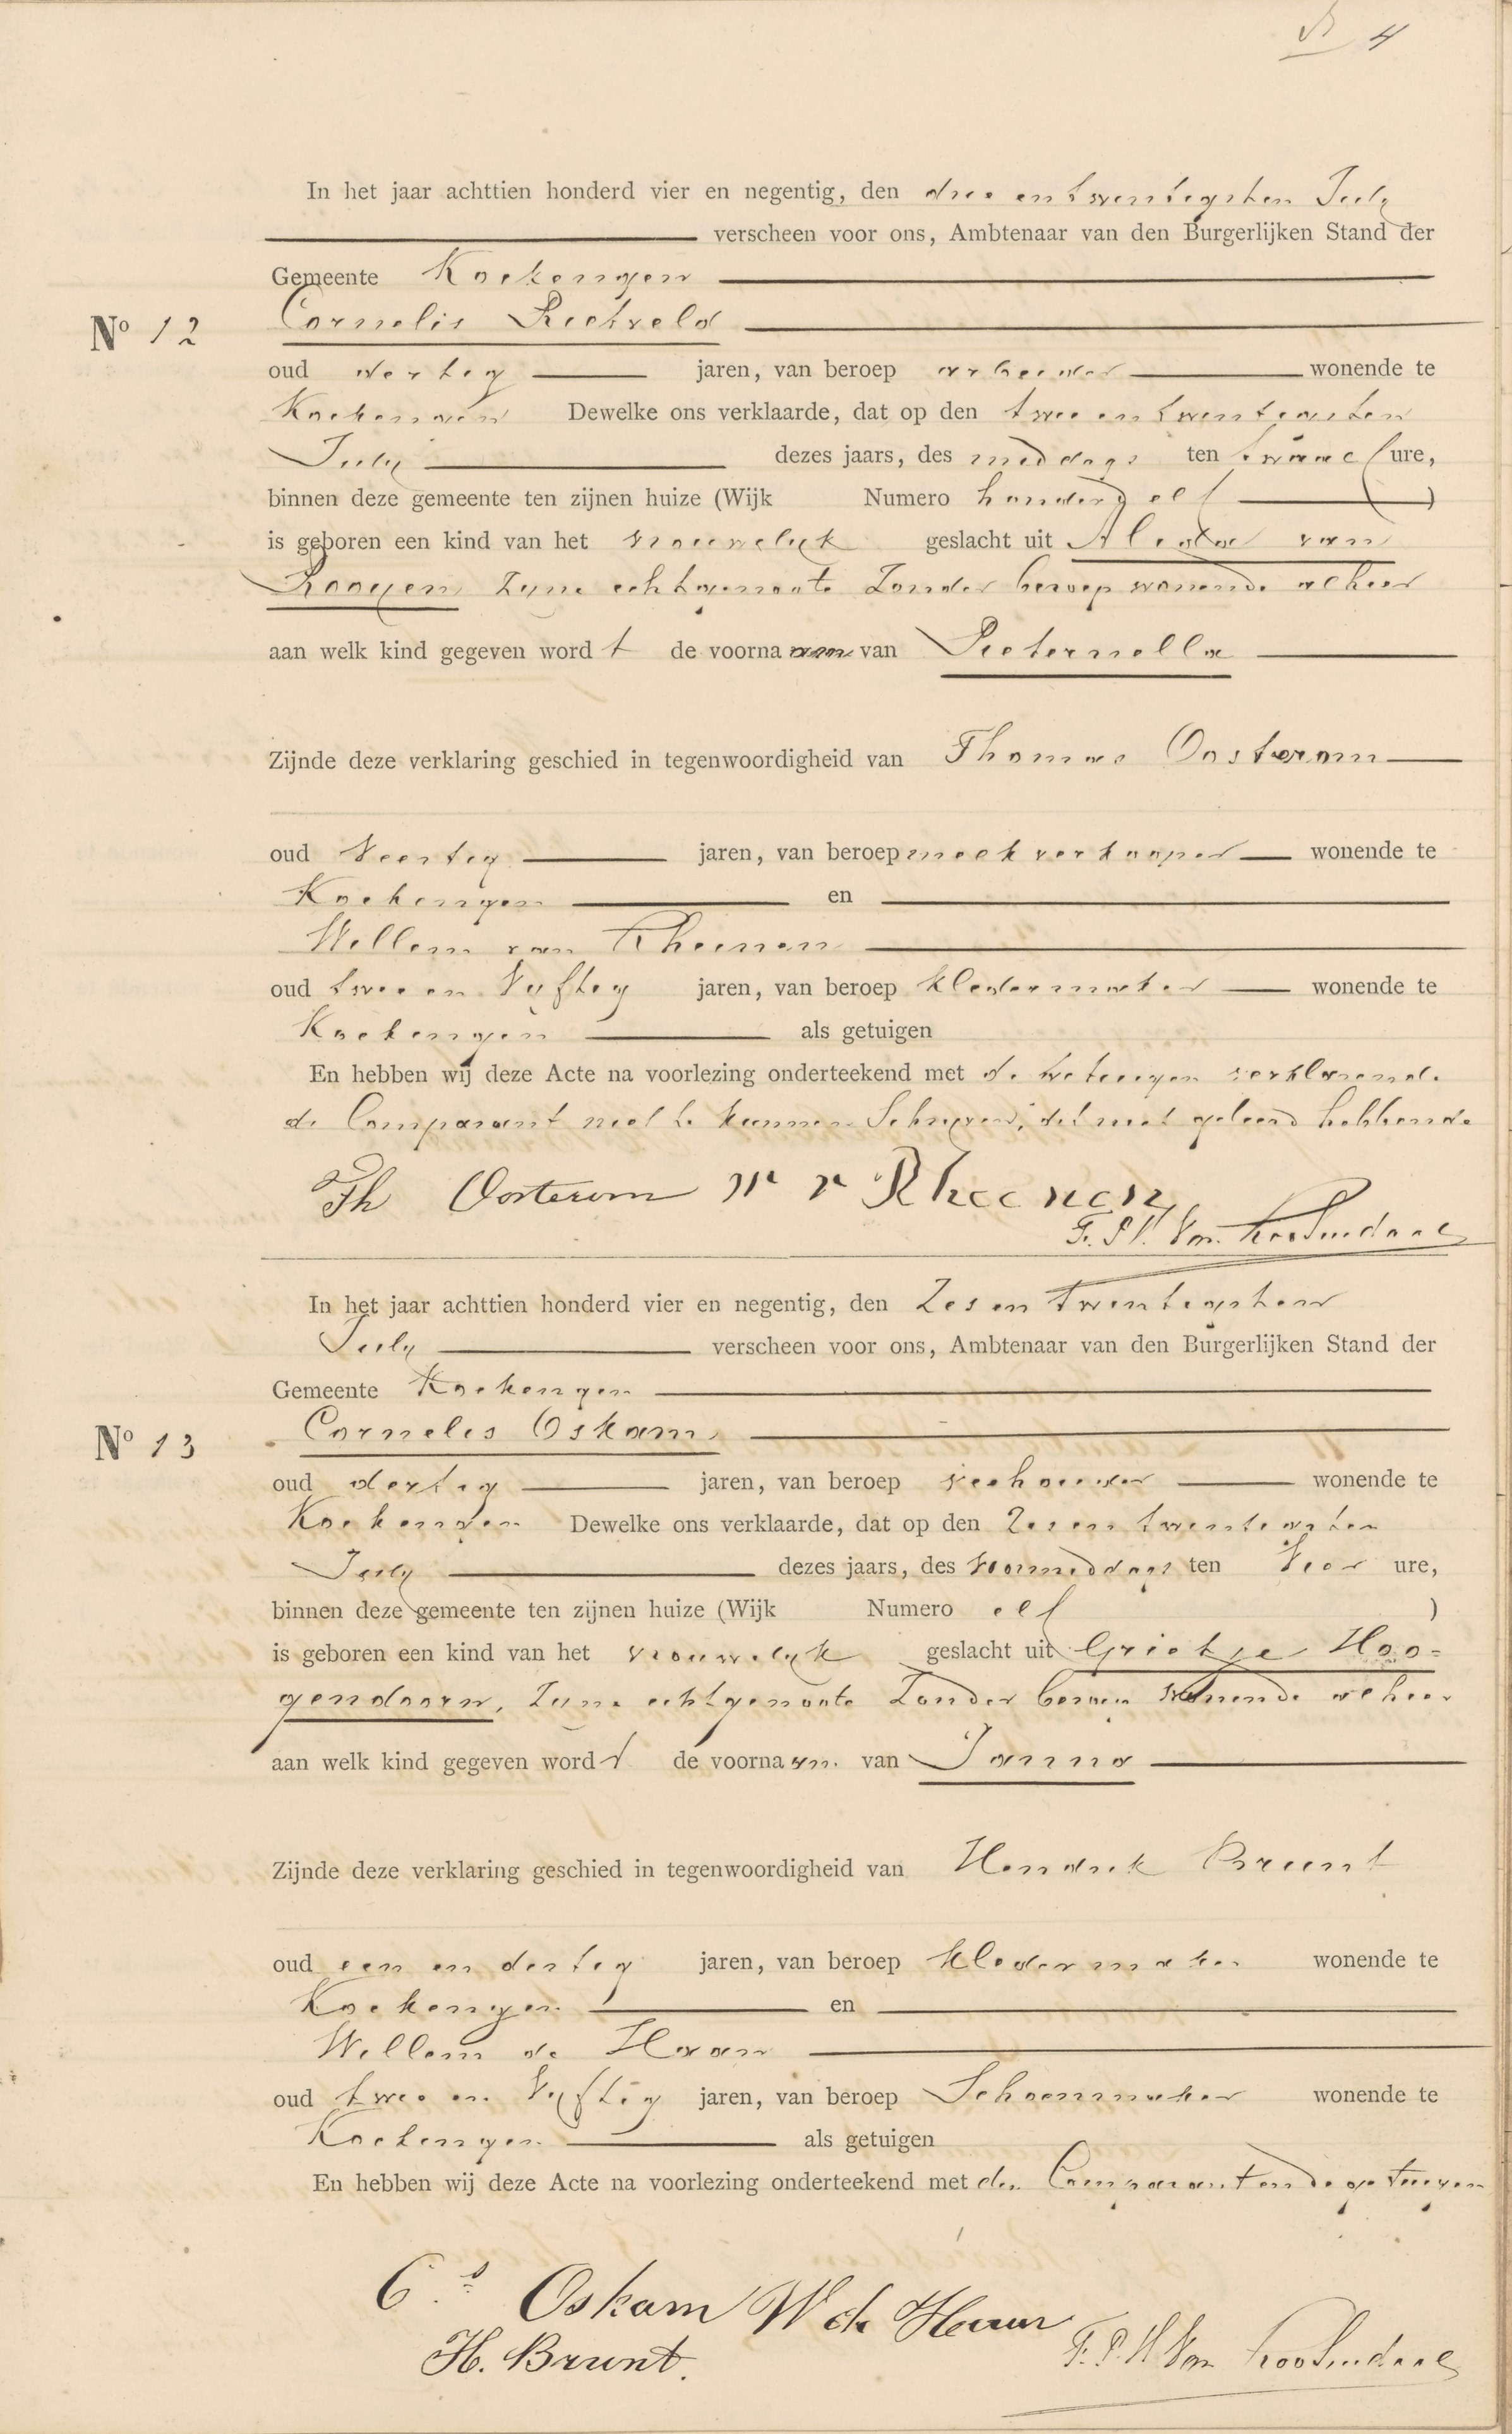 4
In het jaar achttien honderd vier en negentig, den drie en twentigsten July
verscheen voor ons, Ambtenaar van den Burgerlijken Stand der
Gemeente Kockengen
No 12 Cornelis Rietveld
oud dertig jaren, van beroep arbeider wonende te
Kockengen Dewelke ons verklaarde, dat op den twee en twentigsten
July dezes jaars, des middags ten twaalf ure,
binnen deze gemeente ten zijnen huize (Wijk Numero honderd elf )
is geboren een kind van het vrouwelyk geslacht uit Alida van
Rooyen, Zyne echtgenoote Zonder beroep wonende alhier
aan welk kind gegeven word t de voorna am van Pieternella
Zijnde deze verklaring geschied in tegenwoordigheid van Thomas Oosterom
oud Veertig jaren, van beroep meelverkooper wonende te
Kockengen en
Willem van Rheenen
oud twee en Vyftig jaren, van beroep kledermaker wonende te
Kockengen als getuigen
En hebben wij deze Acte na voorlezing onderteekend met de getuigen verklarende
de Comparant niet te kunnen Schryven, dit niet geleerd hebbende
Th Oosterom W v Rheenen
In het jaar achttien honderd vier en negentig, den Zes en twentigsten
July verscheen voor ons, Ambtenaar van den Burgerlijken Stand der
Gemeente Kockengen
No 13 Cornelis Oskam
oud dertig jaren, van beroep veehouder wonende te
Kockengen Dewelke ons verklaarde, dat op den Zes en twentigsten
July dezes jaars, des voormiddags ten Vier ure,
binnen deze gemeente ten zijnen huize (Wijk Numero elf )
is geboren een kind van het vrouwelyk geslacht uit Grietje Hoo=
gendoorn, Zyne echtgenoote Zonder beroep wonende alhier
aan welk kind gegeven word t de voorna am van Janna
Zijnde deze verklaring geschied in tegenwoordigheid van Hendrik Brunt
oud een en dertig jaren, van beroep kledermaker wonende te
Kockengen en
Willem de Haan
oud twee en Vyftig jaren, van beroep Schoenmaker wonende te
Kockengen als getuigen
En hebben wij deze Acte na voorlezing onderteekend met den Comparant en de getuigen
Cs Oskam W de Haan
H. Brunt.